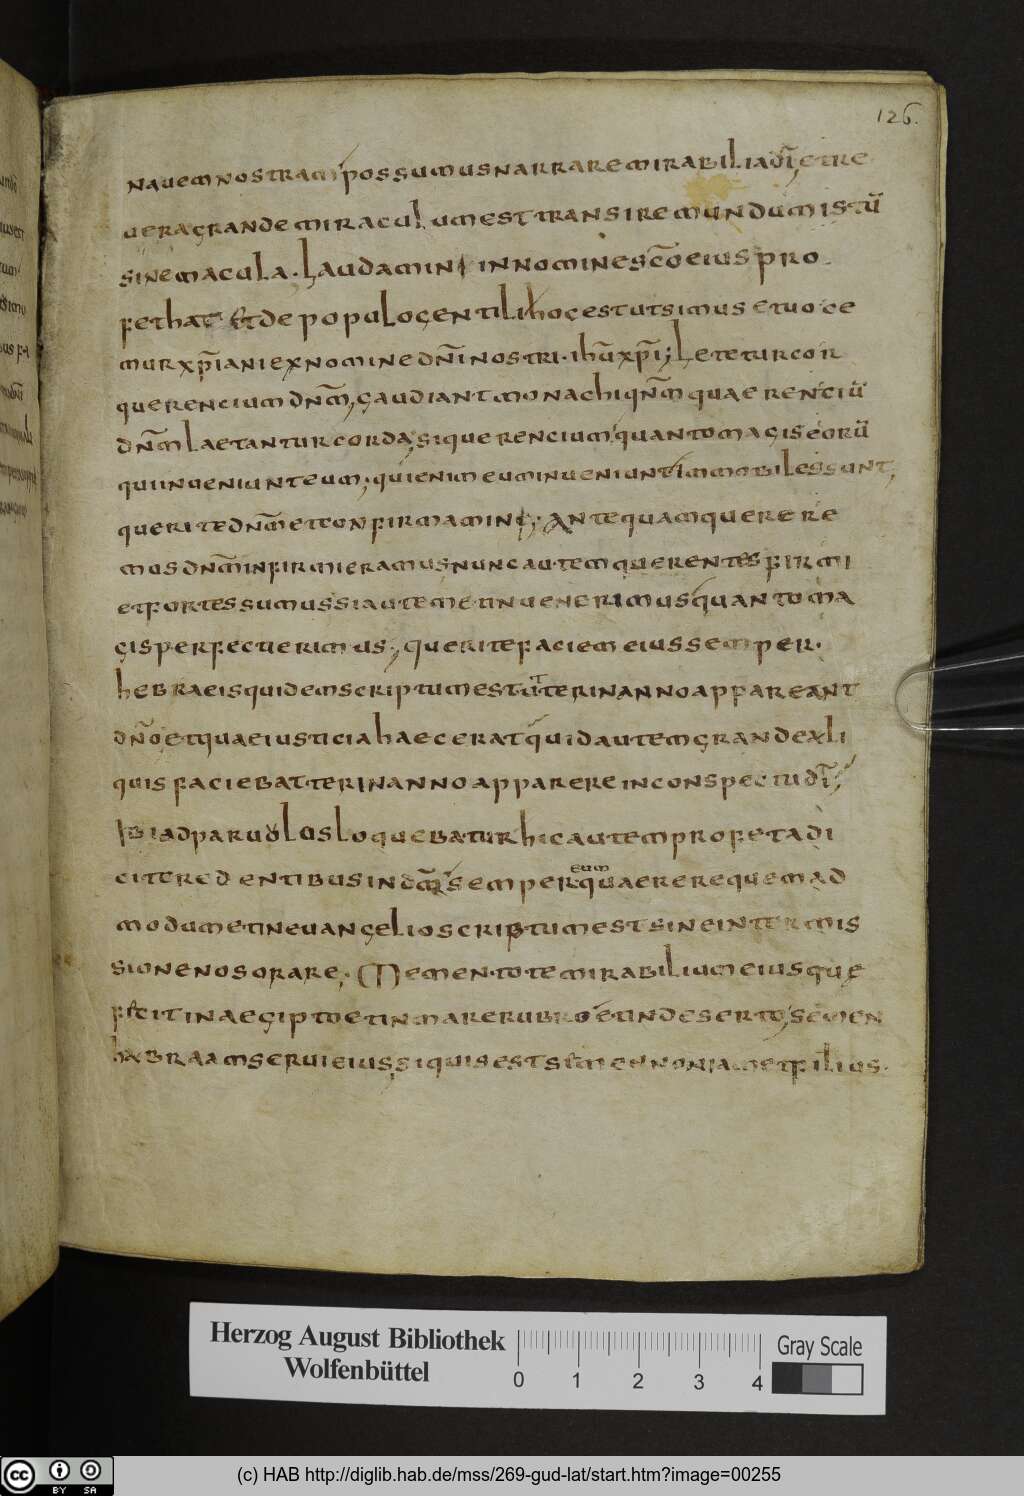 126.
nauem nostram possumus narrare mirabilia dī, et re
uera grande miraculum est transire mundum istū
sine macula. Laudamini in nomine sc̄o eius pro
fethae Et de populo gentili hoc est ut simus et uoce
mur xp̄iani ex nomine dn̄i nostri. ihū xp̄i; Letetur cor
querencium dn̄m, gaudiant monachi qnm̄ quaerenciū
dn̄m laetantur corda, si querencium quanto magis eorū
qui inueniunt eum; qui enim eum inueniunt immobiles sunt,
querite dn̄m et confirmamini; Antequam querere
mus dn̄m infirmi eramus nunc autem querentes firmi
et fortes sumus si autem et inuenerimus quanto ma
gis perfecti erimus; querite faciem eius semper.
hebraeis quidem scriptum est ut ter in anno appareant
dn̄o et quae iusticia haec erat quid autem grande ali
quis faciebat ter in anno apparere in conspectu dī;
Ibi ad paruolos loquebatur hic autem profeta di
cit credentibus in dm̄ semper quaerere quemad
eum
modum et in euangelio scriptum est sine intermis
sione nos orare; Mementote mirabilium eius que
fecit in aegipto et in mare rubro et in deserto, semen
habraam serui eius si quis est semen non iam et filius.
Herzog August Bibliothek
Wolfenbüttel
0 1 2 3 4
Gray Scale
cc BY SA
(c) HAB http://diglib.hab.de/mss/269-gud-lat/start.htm?image=00255